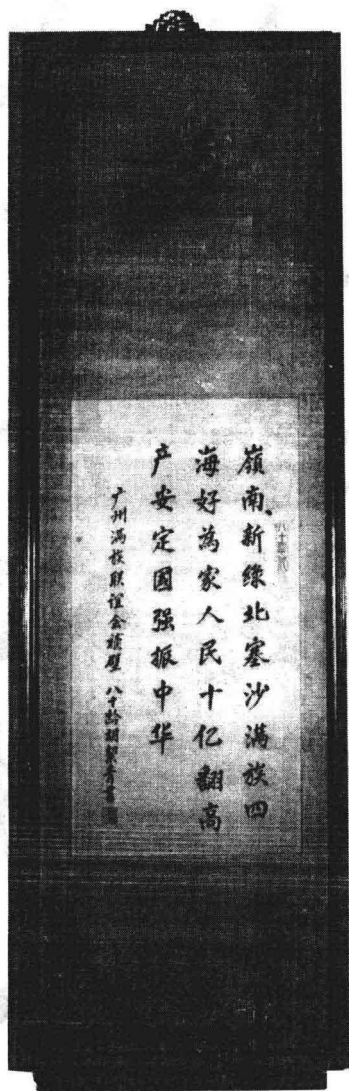 嶺南新綠北塞沙滿族四
海好為家人民十亿翻高
产安定国强振中华
广州满族联谊会補壁 八十龄胡絜青書